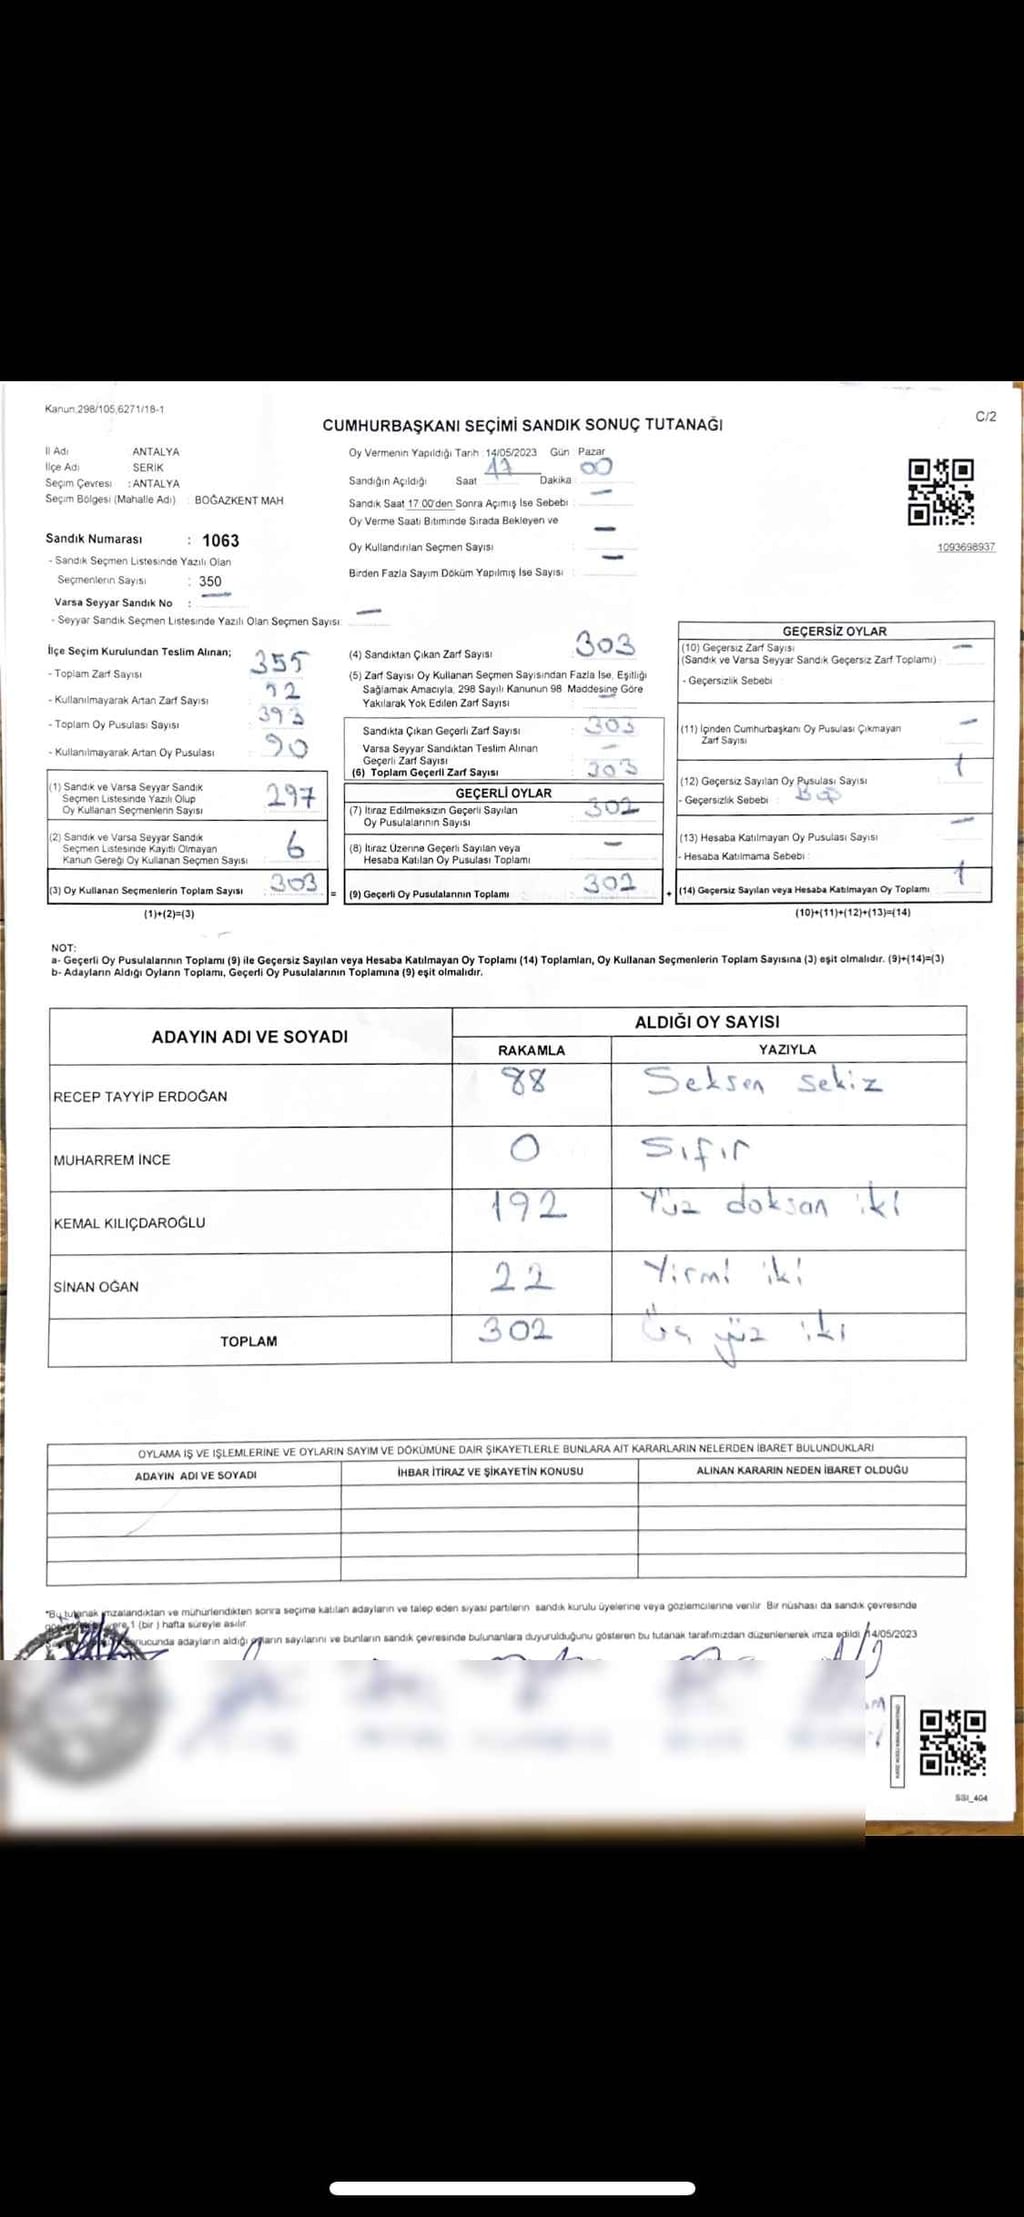 Kanun.298/105,6271/18-1
C/2
CUMHURBAŞKANI SEÇİMİ SANDIK SONUÇ TUTANAĞI
İl Adı ANTALYA
İlçe Adı SERİK
Seçim Çevresi : ANTALYA
Seçim Bölgesi (Mahalle Adı) : BOĞAZKENT MAH
Oy Vermenin Yapıldığı Tarih :14/05/2023 Gün Pazar
Sandığın Açıldığı Saat 17 Dakika 00
Sandık Saat 17.00'den Sonra Açımış İse Sebebi : –
Oy Verme Saati Bitiminde Sırada Bekleyen ve
Oy Kullandırılan Seçmen Sayısı : –
Birden Fazla Sayım Döküm Yapılmış İse Sayısı : –
1093698937
Sandık Numarası : 1063
- Sandık Seçmen Listesinde Yazılı Olan
Seçmenlerin Sayısı : 350
Varsa Seyyar Sandık No : –
- Seyyar Sandık Seçmen Listesinde Yazılı Olan Seçmen Sayısı: –
İlçe Seçim Kurulundan Teslim Alınan;
- Toplam Zarf Sayısı 355
- Kullanılmayarak Artan Zarf Sayısı
- Toplam Oy Pusulası Sayısı 393
- Kullanılmayarak Artan Oy Pusulası 90
(1) Sandık ve Varsa Seyyar Sandık
Seçmen Listesinde Yazılı Olup
Oy Kullanan Seçmenlerin Sayısı 297
(2) Sandık ve Varsa Seyyar Sandık
Seçmen Listesinde Kayıtlı Olmayan
Kanun Gereği Oy Kullanan Seçmen Sayısı 6
(3) Oy Kullanan Seçmenlerin Toplam Sayısı 303 =
(1)+(2)=(3)
(4) Sandıktan Çıkan Zarf Sayısı : 303
(5) Zarf Sayısı Oy Kullanan Seçmen Sayısından Fazla İse, Eşitliği
Sağlamak Amacıyla, 298 Sayılı Kanunun 98 Maddesine Göre
Yakılarak Yok Edilen Zarf Sayısı –
Sandıkta Çıkan Geçerli Zarf Sayısı : 303
Varsa Seyyar Sandıktan Teslim Alınan
Geçerli Zarf Sayısı –
(6) Toplam Geçerli Zarf Sayısı : 303
GEÇERLİ OYLAR
(7) İtiraz Edilmeksizin Geçerli Sayılan
Oy Pusulalarının Sayısı 302
(8) İtiraz Üzerine Geçerli Sayılan veya
Hesaba Katılan Oy Pusulası Toplamı –
(9) Geçerli Oy Pusulalarının Toplamı 302 +
GEÇERSİZ OYLAR
(10) Geçersiz Zarf Sayısı –
(Sandık ve Varsa Seyyar Sandık Geçersiz Zarf Toplamı) :
- Geçersizlik Sebebi
(11) İçinden Cumhurbaşkanı Oy Pusulası Çıkmayan
Zarf Sayısı –
(12) Geçersiz Sayılan Oy Pusulası Sayısı 1
- Geçersizlik Sebebi :
(13) Hesaba Katılmayan Oy Pusulası Sayısı –
- Hesaba Katılmama Sebebi :
(14) Geçersiz Sayılan veya Hesaba Katılmayan Oy Toplamı 1
(10)+(11)+(12)+(13)=(14)
NOT:
a- Geçerli Oy Pusulalarının Toplamı (9) ile Geçersiz Sayılan veya Hesaba Katılmayan Oy Toplamı (14) Toplamları, Oy Kullanan Seçmenlerin Toplam Sayısına (3) eşit olmalıdır. (9)+(14)=(3)
b- Adayların Aldığı Oyların Toplamı, Geçerli Oy Pusulalarının Toplamına (9) eşit olmalıdır.
ADAYIN ADI VE SOYADI
ALDIĞI OY SAYISI
RAKAMLA YAZIYLA
RECEP TAYYİP ERDOĞAN 88 Seksen sekiz
MUHARREM İNCE 0 Sıfır
KEMAL KILIÇDAROĞLU 192 Yüz doksan iki
SİNAN OĞAN 22 Yirmi iki
TOPLAM 302 Üç yüz iki
OYLAMA İŞ VE İŞLEMLERİNE VE OYLARIN SAYIM VE DÖKÜMÜNE DAİR ŞİKAYETLERLE BUNLARA AİT KARARLARIN NELERDEN İBARET BULUNDUKLARI
ADAYIN ADI VE SOYADI İHBAR İTİRAZ VE ŞİKAYETİN KONUSU ALINAN KARARIN NEDEN İBARET OLDUĞU
"Bu tutanak imzalandıktan ve mühürlendikten sonra seçime katılan adayların ve talep eden siyasi partilerin sandık kurulu üyelerine veya gözlemcilerine verilir. Bir nüshası da sandık çevresinde
1 (bir) hafta süreyle asılır.
sonucunda adayların aldığı oyların sayılarını ve bunların sandık çevresinde bulunanlara duyurulduğunu gösteren bu tutanak tarafımızdan düzenlenerek imza edildi. 14/05/2023
SSI_404